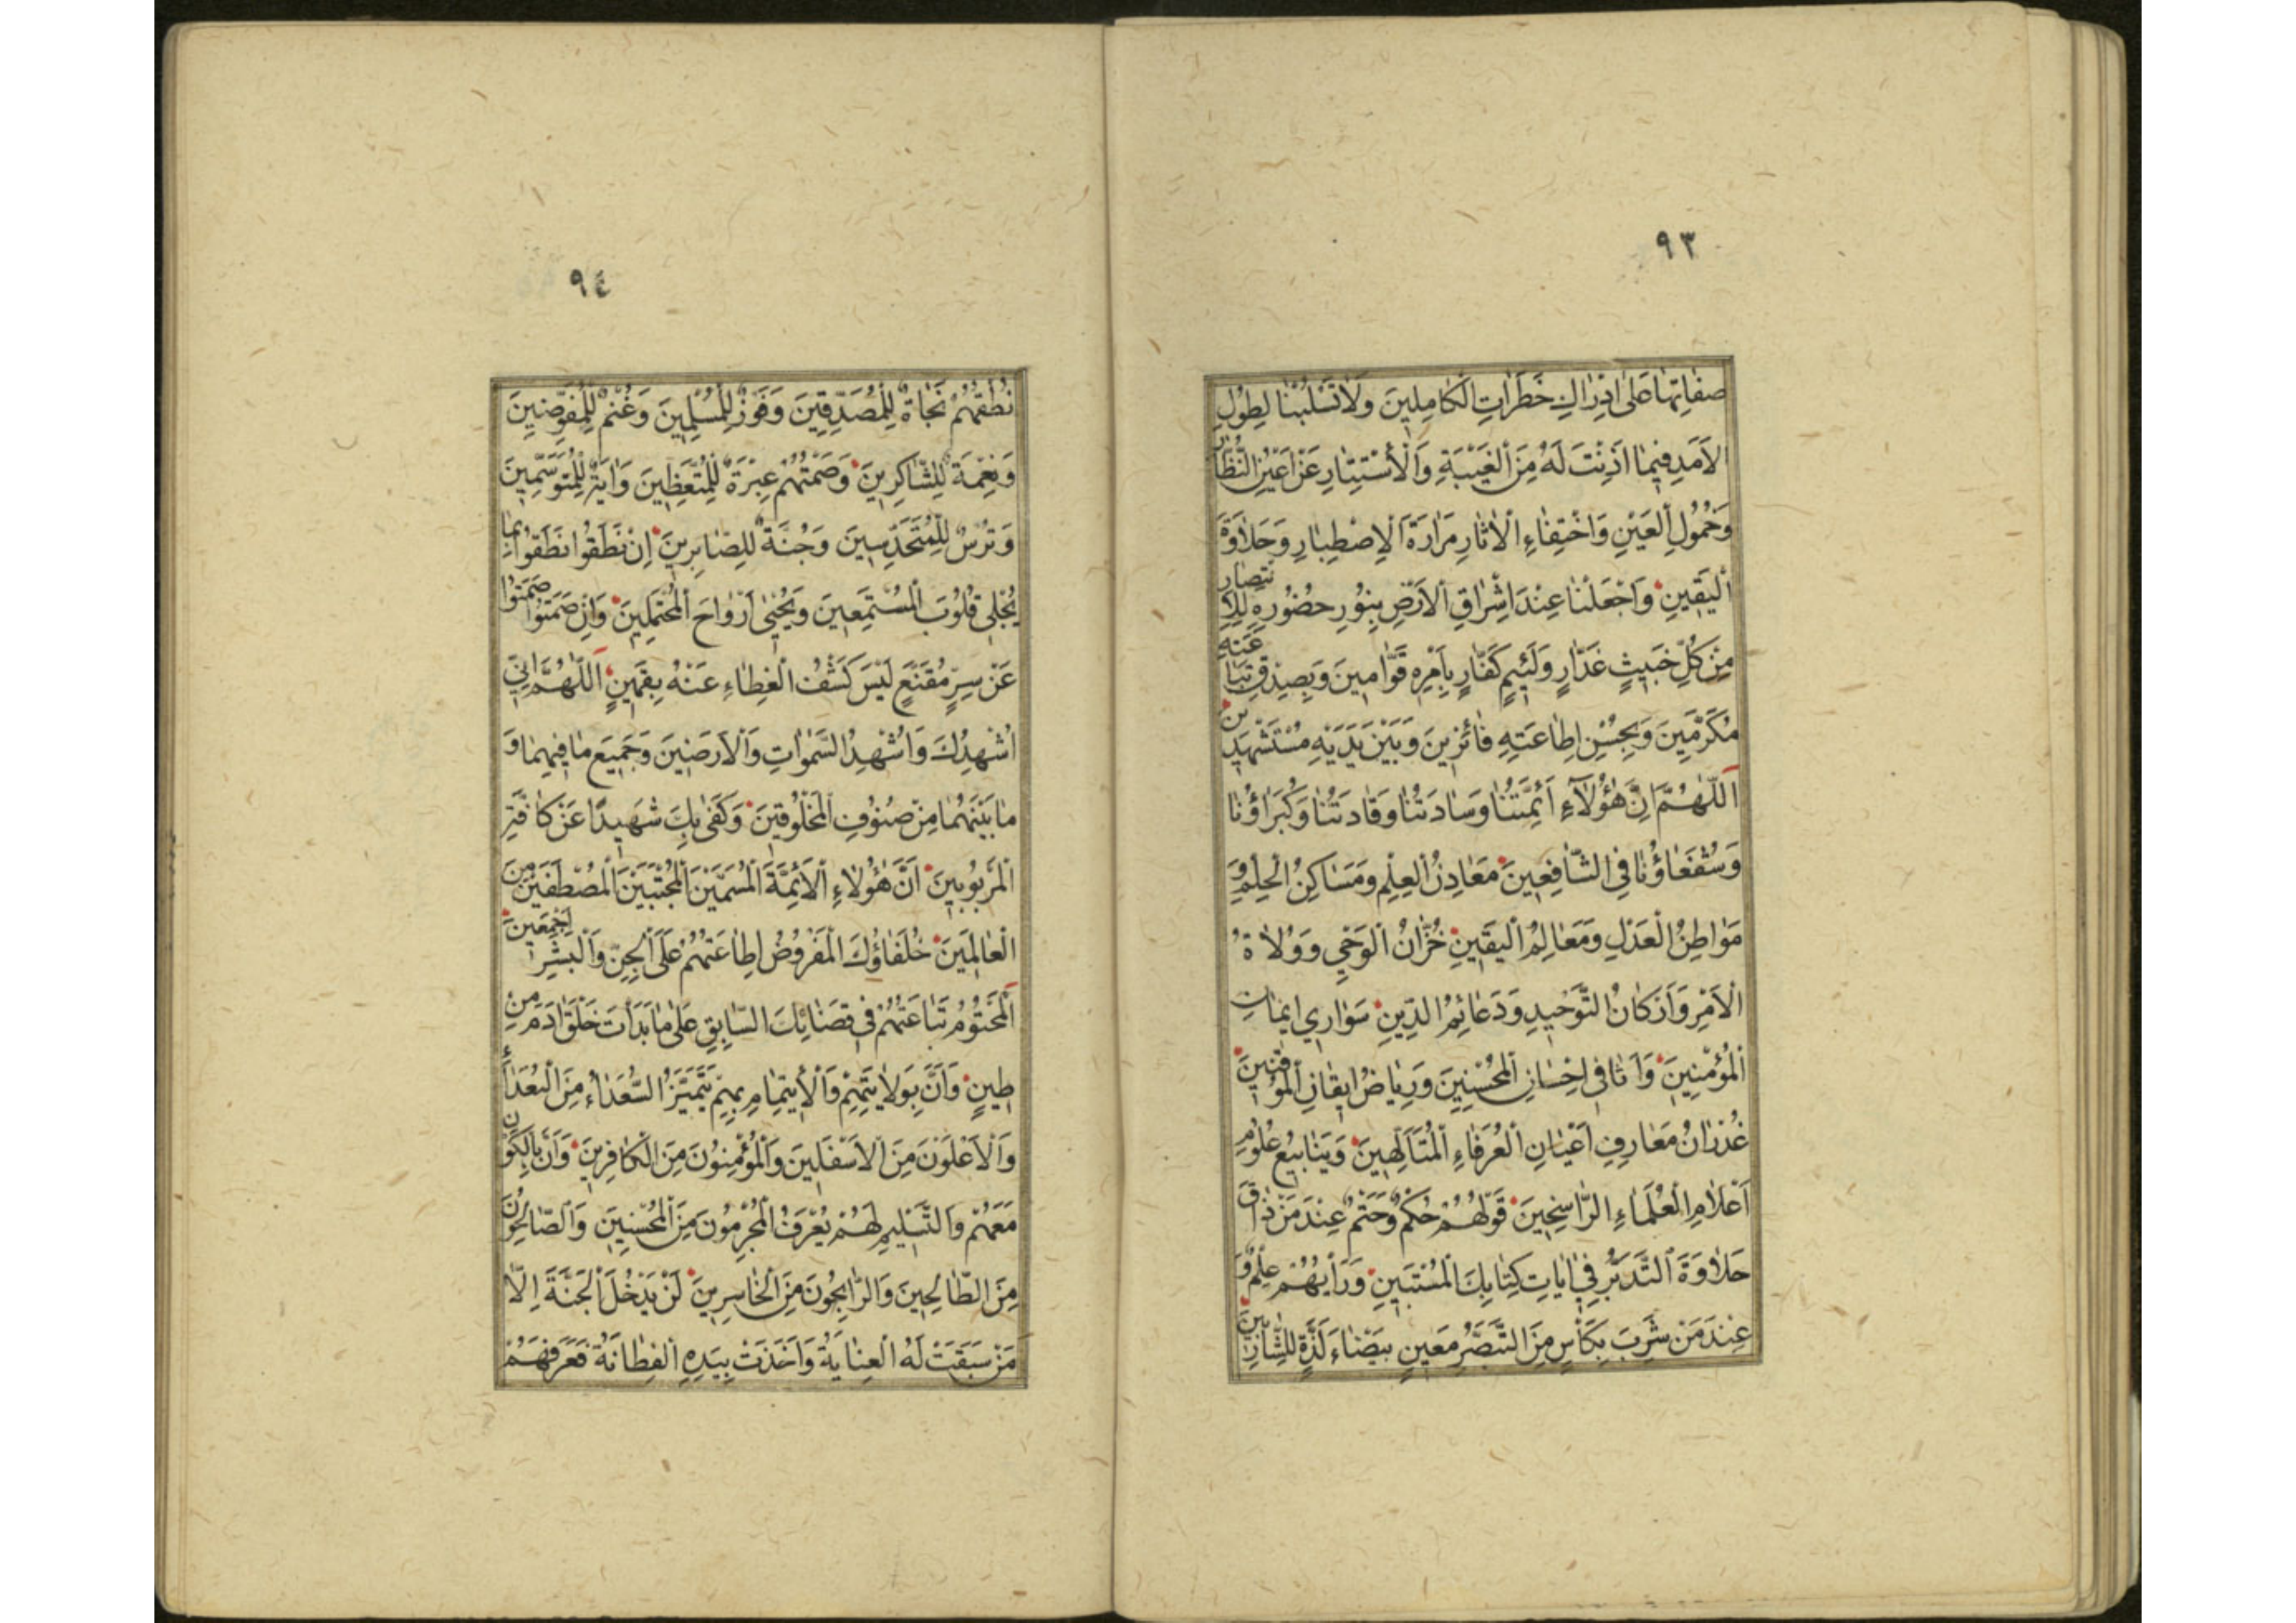 ٩٣
صِفَاتِهَا عَلَىٰ اِدْرَاكِ خَطَرَاتِ الْكَامِلِينَ وَلَا تَسْلُبْنَا لِطُولِ
الْاَمَدِ فِيمَا اَذِنْتَ لَهُ مِنَ الْغَيْبَةِ وَالْاِسْتِتَارِ عَنْ اَعْيُنِ النُّظَّارِ
وَخُمُولِ الْعَيْنِ وَاخْتِفَاءِ الْاٰثَارِ مَرَارَةَ الْاِصْطِبَارِ وَحَلَاوَةَ
الْيَقِينِ وَاجْعَلْنَا عِنْدَ اِشْرَاقِ الْاَرْضِ بِنُورِ حُضُورِهِ لِلْاِنْتِصَارِ
مِنْ كُلِّ خَبِيثٍ غَدَّارٍ وَلَئِيمٍ كَفَّارٍ بِاَمْرِهِ قَوَّامِينَ وَبِصِدْقِ تَبَاعَتِهِ
مُكَرَّمِينَ وَبِحُسْنِ اِطَاعَتِهِ فَائِزِينَ وَبَيْنَ يَدَيْهِ مُسْتَشْهَدِينَ
اَللّٰهُمَّ اِنَّ هٰؤُلَاءِ اَئِمَّتُنَا وَسَادَتُنَا وَقَادَتُنَا وَكُبَرَاؤُنَا
وَشُفَعَاؤُنَا فِي الشَّافِعِينَ مَعَادِنُ الْعِلْمِ وَمَسَاكِنُ الْحِلْمِ وَ
مَوَاطِنُ الْعَدْلِ وَمَعَالِمُ الْيَقِينِ خُزَّانُ الْوَحْيِ وَوُلَاةُ
الْاَمْرِ وَاَرْكَانُ التَّوْحِيدِ وَدَعَائِمُ الدِّينِ سَوَارِي اِيمَانِ
الْمُؤْمِنِينَ وَاَثَافِي اِحْسَانِ الْمُحْسِنِينَ وَرِيَاضُ اِيقَانِ الْمُوقِنِينَ
غُدْرَانُ مَعَارِفِ اَعْيَانِ الْعُرَفَاءِ الْمُتَاَلِّهِينَ وَيَنَابِيعُ عُلُومِ
اَعْلَامِ الْعُلَمَاءِ الرَّاسِخِينَ قَوْلُهُمْ حُكْمٌ وَحَتْمٌ عِنْدَ مَنْ ذَاقَ
حَلَاوَةَ التَّدَبُّرِ فِي اٰيَاتِ كِتَابِكَ الْمُسْتَبِينِ وَرَأْيُهُمْ عِلْمٌ وَ
عِنْدَ مَنْ شَرِبَ بِكَأْسٍ مِنَ التَّبَصُّرِ مَعِينٍ بَيْضَاءَ لَذَّةٍ لِلشَّارِبِينَ
٩٤
نُطْقُهُمْ نَجَاةٌ لِلْمُصَدِّقِينَ وَفَوْزٌ لِلْمُسْلِمِينَ وَغُنْمٌ لِلْمُفَوِّضِينَ
وَنِعْمَةٌ لِلشَّاكِرِينَ وَصَمْتُهُمْ عِبْرَةٌ لِلْمُتَّعِظِينَ وَاٰيَةٌ لِلْمُتَوَسِّمِينَ
وَتُرْسٌ لِلْمُتَحَدِّسِينَ وَجُنَّةٌ لِلصَّابِرِينَ اِنْ نَطَقُوا نَطَقُوا بِمَا
يُجْلِي قُلُوبَ الْمُسْتَمِعِينَ وَيُحْيِي اَرْوَاحَ الْمُحْتَمِلِينَ وَاِنْ صَمَتُوا صَمَتُوا
عَنْ سِرٍّ مُقَنَّعٍ لَيْسَ كَشْفُ الْغِطَاءِ عَنْهُ بِقَمِينٍ اَللّٰهُمَّ اِنِّي
اُشْهِدُكَ وَاُشْهِدُ السَّمٰوَاتِ وَالْاَرَضِينَ وَجَمِيعَ مَا فِيهِمَا وَ
مَا بَيْنَهُمَا مِنْ صُنُوفِ الْمَخْلُوقِينَ وَكَفَىٰ بِكَ شَهِيدًا عَنْ كَافَّةِ
الْمَرْبُوبِينَ اَنَّ هٰؤُلَاءِ الْاَئِمَّةَ الْمُسَمَّيْنَ الْمُجْتَبَيْنَ الْمُصْطَفَيْنَ مِنَ
الْعَالَمِينَ خُلَفَاؤُكَ الْمَفْرُوضُ اِطَاعَتُهُمْ عَلَى الْجِنِّ وَالْبَشَرِ اَجْمَعِينَ
اَلْمَحْتُومُ تَبَاعَتُهُمْ فِي قَضَائِكَ السَّابِقِ عَلَىٰ مَا بَدَأْتَ خَلْقَ اٰدَمَ مِنْ
طِينٍ وَاَنَّ بِوَلَايَتِهِمْ وَالْاِيتِمَامِ بِهِمْ يَتَمَيَّزُ السُّعَدَاءُ مِنَ الْبُعَدَاءِ
وَالْاَعْلَوْنَ مِنَ الْاَسْفَلِينَ وَالْمُؤْمِنُونَ مِنَ الْكَافِرِينَ وَاَنَّ بِالْكَوْنِ
مَعَهُمْ وَالتَّسْلِيمِ لَهُمْ يُعْرَفُ الْمُجْرِمُونَ مِنَ الْمُحْسِنِينَ وَالصَّالِحُونَ
مِنَ الطَّالِحِينَ وَالرَّابِحُونَ مِنَ الْخَاسِرِينَ لَنْ يَدْخُلَ الْجَنَّةَ اِلَّا
مَنْ سَبَقَتْ لَهُ الْعِنَايَةُ وَاَخَذَتْ بِيَدِهِ الْفِطَانَةُ فَعَرَفَهُمْ